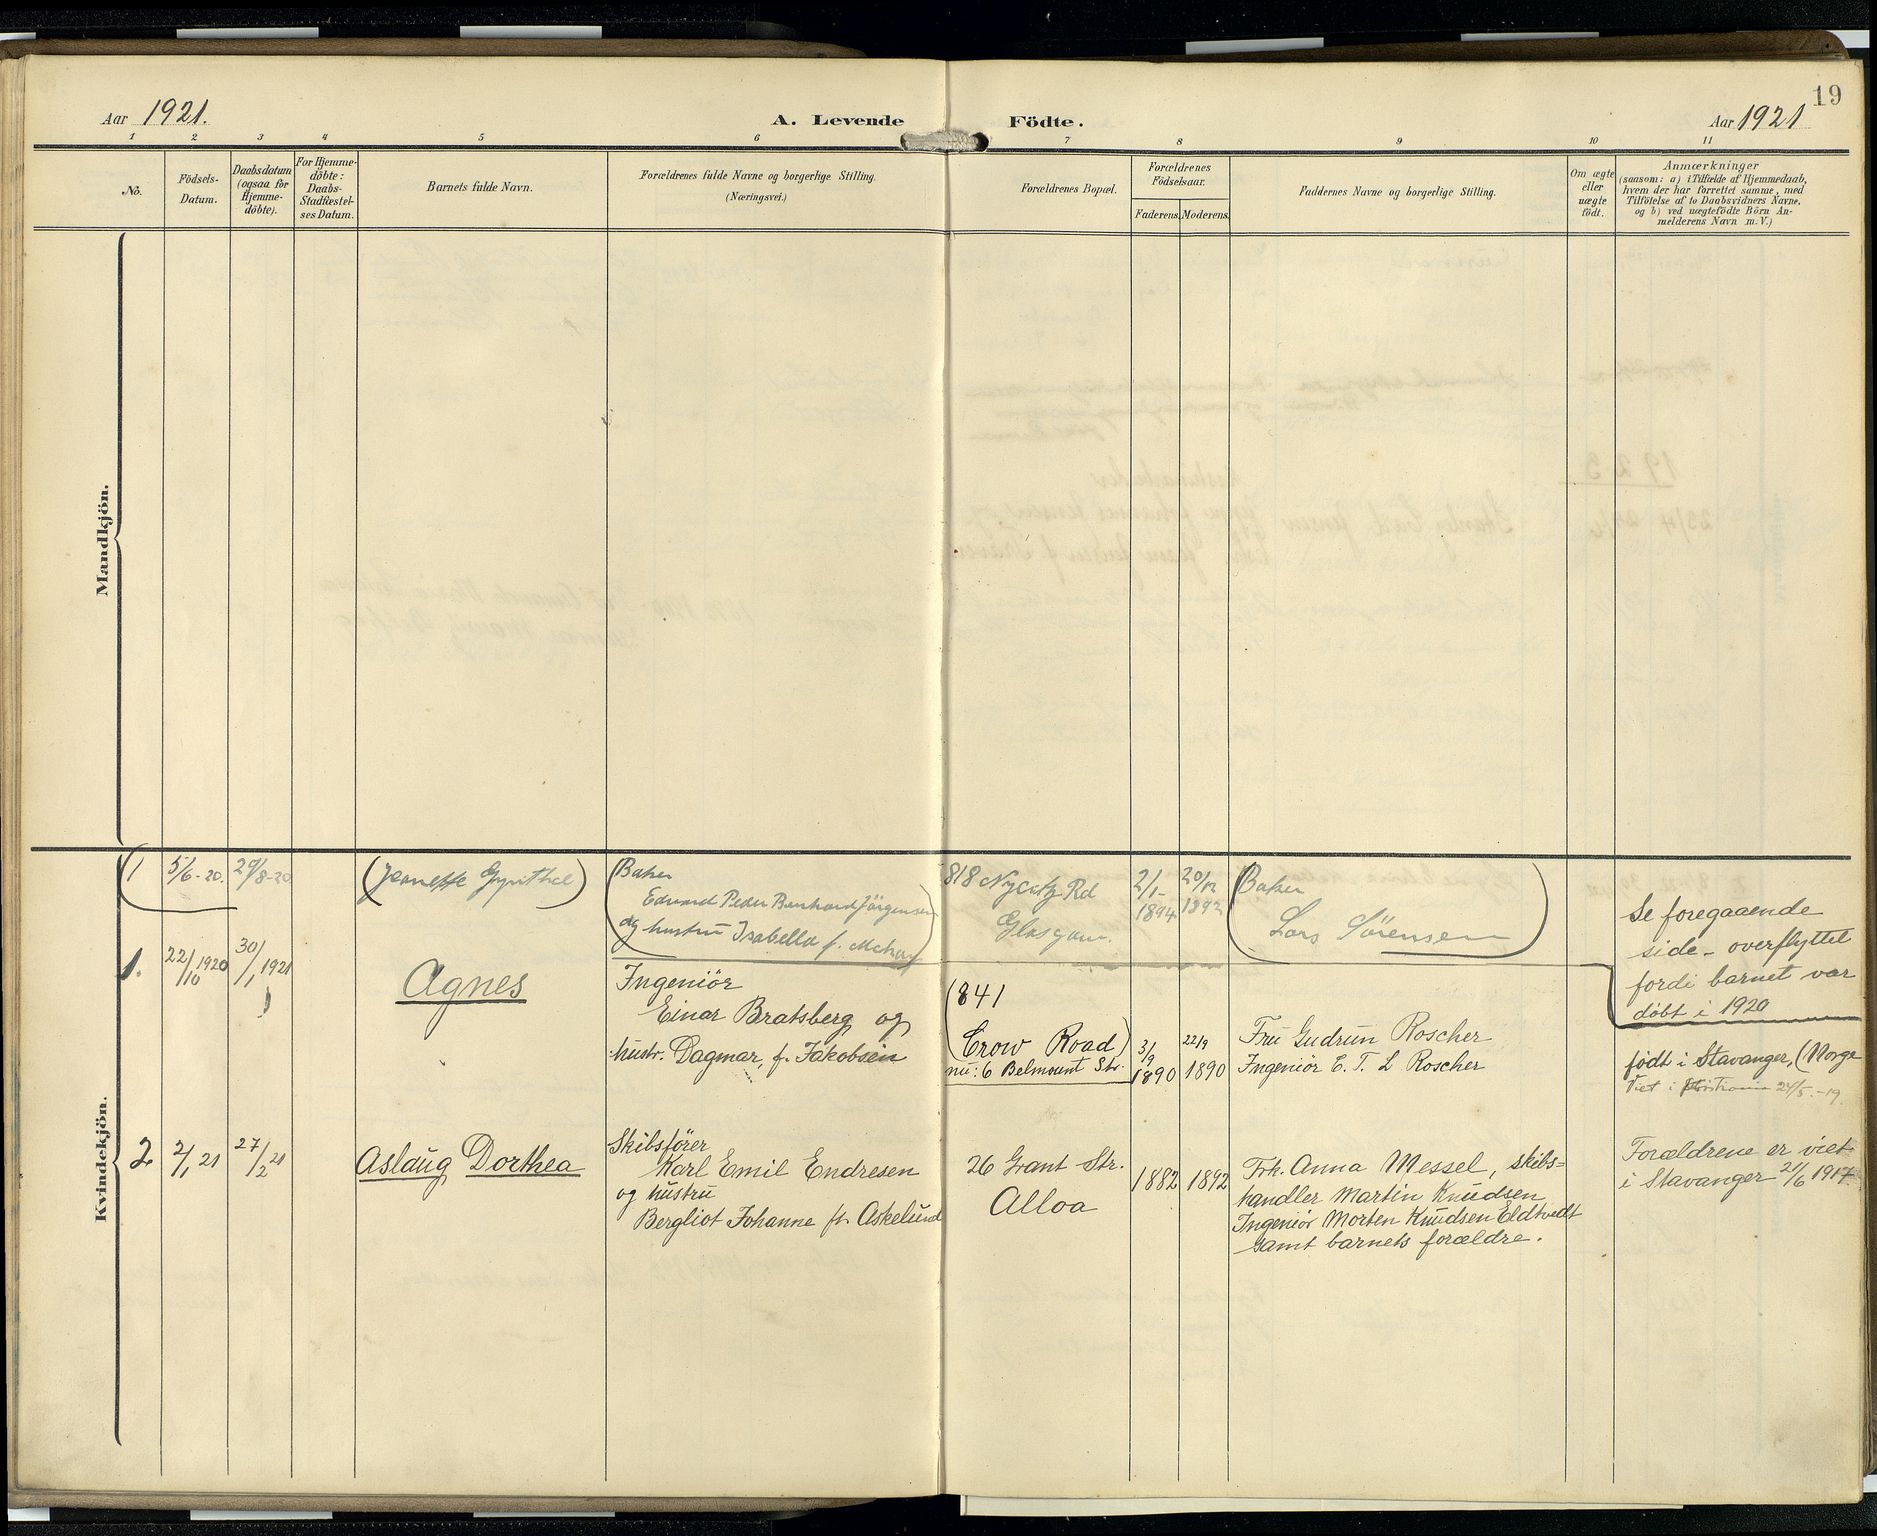 19
Aar 1921.
A. Levende Födte.
Aar 1921
1 2 3 4 5 6 7 8 9 10 11
No.
Födsels-
Datum.
Daabsdatum
(ogsaa for
Hjemme-
döbte).
For Hjemme-
döbte:
Daabs-
Stadfæstel-
ses Datum.
Barnets fulde Navn.
Forældrenes fulde Navne og borgerlige Stilling.
(Næringsvei.)
Forældrenes Bopæl.
Forældrenes
Födselsaar.
Faderens. Moderens.
Faddernes Navne og borgerlige Stilling.
Om ægte
eller
uægte
födt.
Anmærkninger
(saasom: a) i Tilfælde af Hjemmedaab,
hvem der har forrettet samme, med
Tilföielse af to Daabsvidners Navne,
og b) ved uægtefödte Börn An-
melderens Navn m. V.)
Mandkjön.
Kvindekjön.
(1
5/6-20.
29/8-20
(Jeanette )
(Baker
Edvard Peder Bernhard Jörgensen
og hustru Isabella f.
818 Rd
Glasgow.
2/1-
1894
20/12
1892
(Baker
Lars Sörensen)
Se foregaaende
side - overflyttet
fordi barnet var
döbt i 1920
1.
22/10 1920
30/1 1921
Agnes
Ingeniör
Einar Bratsberg og
hustr. Dagmar, f. Jakobsen
(841
Crow Road)
nu: 6 Belmount Str.
3/9
1890
22/9
1890
Fru Gudrun Roscher
Ingeniör E. T. L Roscher
födt i Stavanger, (Norge
Viet i Kristiania 24/5.-19.
2
2/1 21
27/2 21
Aslaug Dorthea
Skibsförer
Karl Emil Endresen
og hustru
Bergliot Johanne f. Askelund
26 Grant Str.
Alloa
1882
1892
Frk. Anna Messel, skibs-
handler Martin Knudsen
Ingeniör Morten Knudsen Eldtvedt
samt barnets forældre.
Forældrene er viet
i Stavanger 21/6 1917